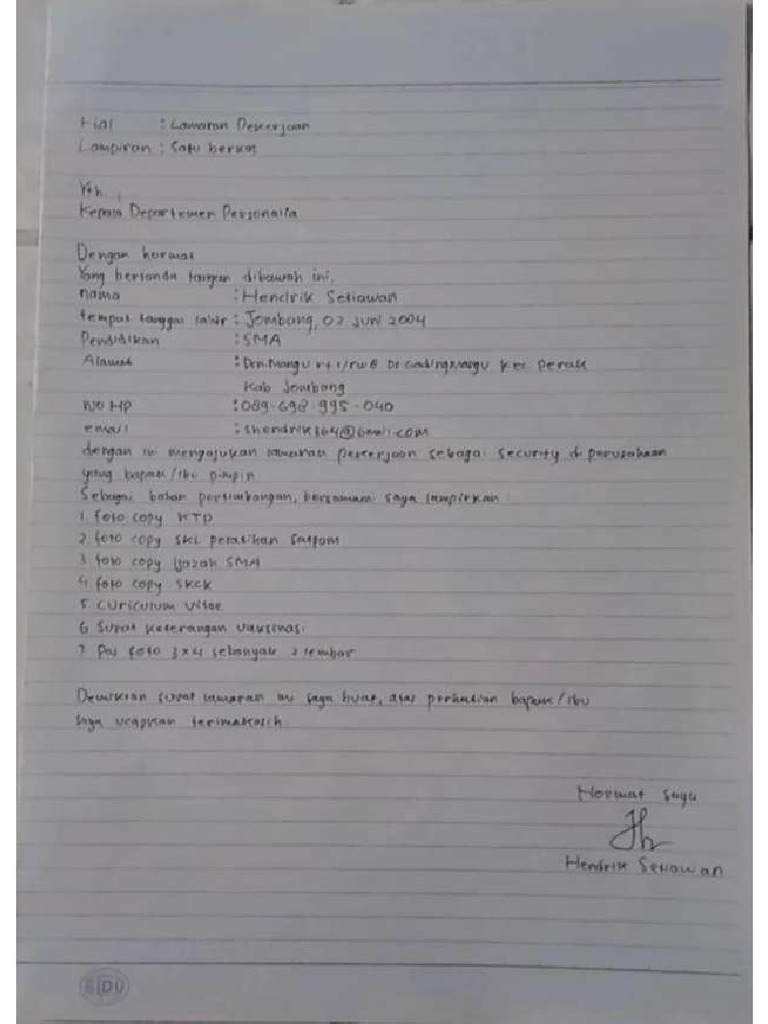 Hal : Lamaran Pekerjaan
Lampiran : Satu berkas
Yth,
Kepala Departemen Personalia
Dengan hormat
Yang bertanda tangan dibawah ini,
nama : Hendrik Setiawan
tempat tanggal lahir : Jombang, 02 Juni 2004
Pendidikan : SMA
Alamat : Dsn.Mangu rt 1/rw 6 Ds Gadingmangu kec perak
Kab Jombang
No HP : 089-698-995-040
email : shendrik364@gmail.com
dengan ini mengajukan lamaran perkerjaan sebagai security di perusahaan
yang bapak/ibu pimpin
Sebagai bahan pertimbangan, bersamaini saya lampirkan
1. foto copy KTP
2. foto copy SKL pelatihan satpam
3. foto copy ijazah SMA
4. foto copy SKCK
5. Curiculum vitae
6. Surat keterangan vaksinasi
7. Pas foto 3x4 sebanyak 2 lembar
Demikian surat lamaran ini saya buat, atas perhatian bapak/ibu
saya ucapkan terimakasih
Hormat saya
Hendrik Setiawan
SIDU